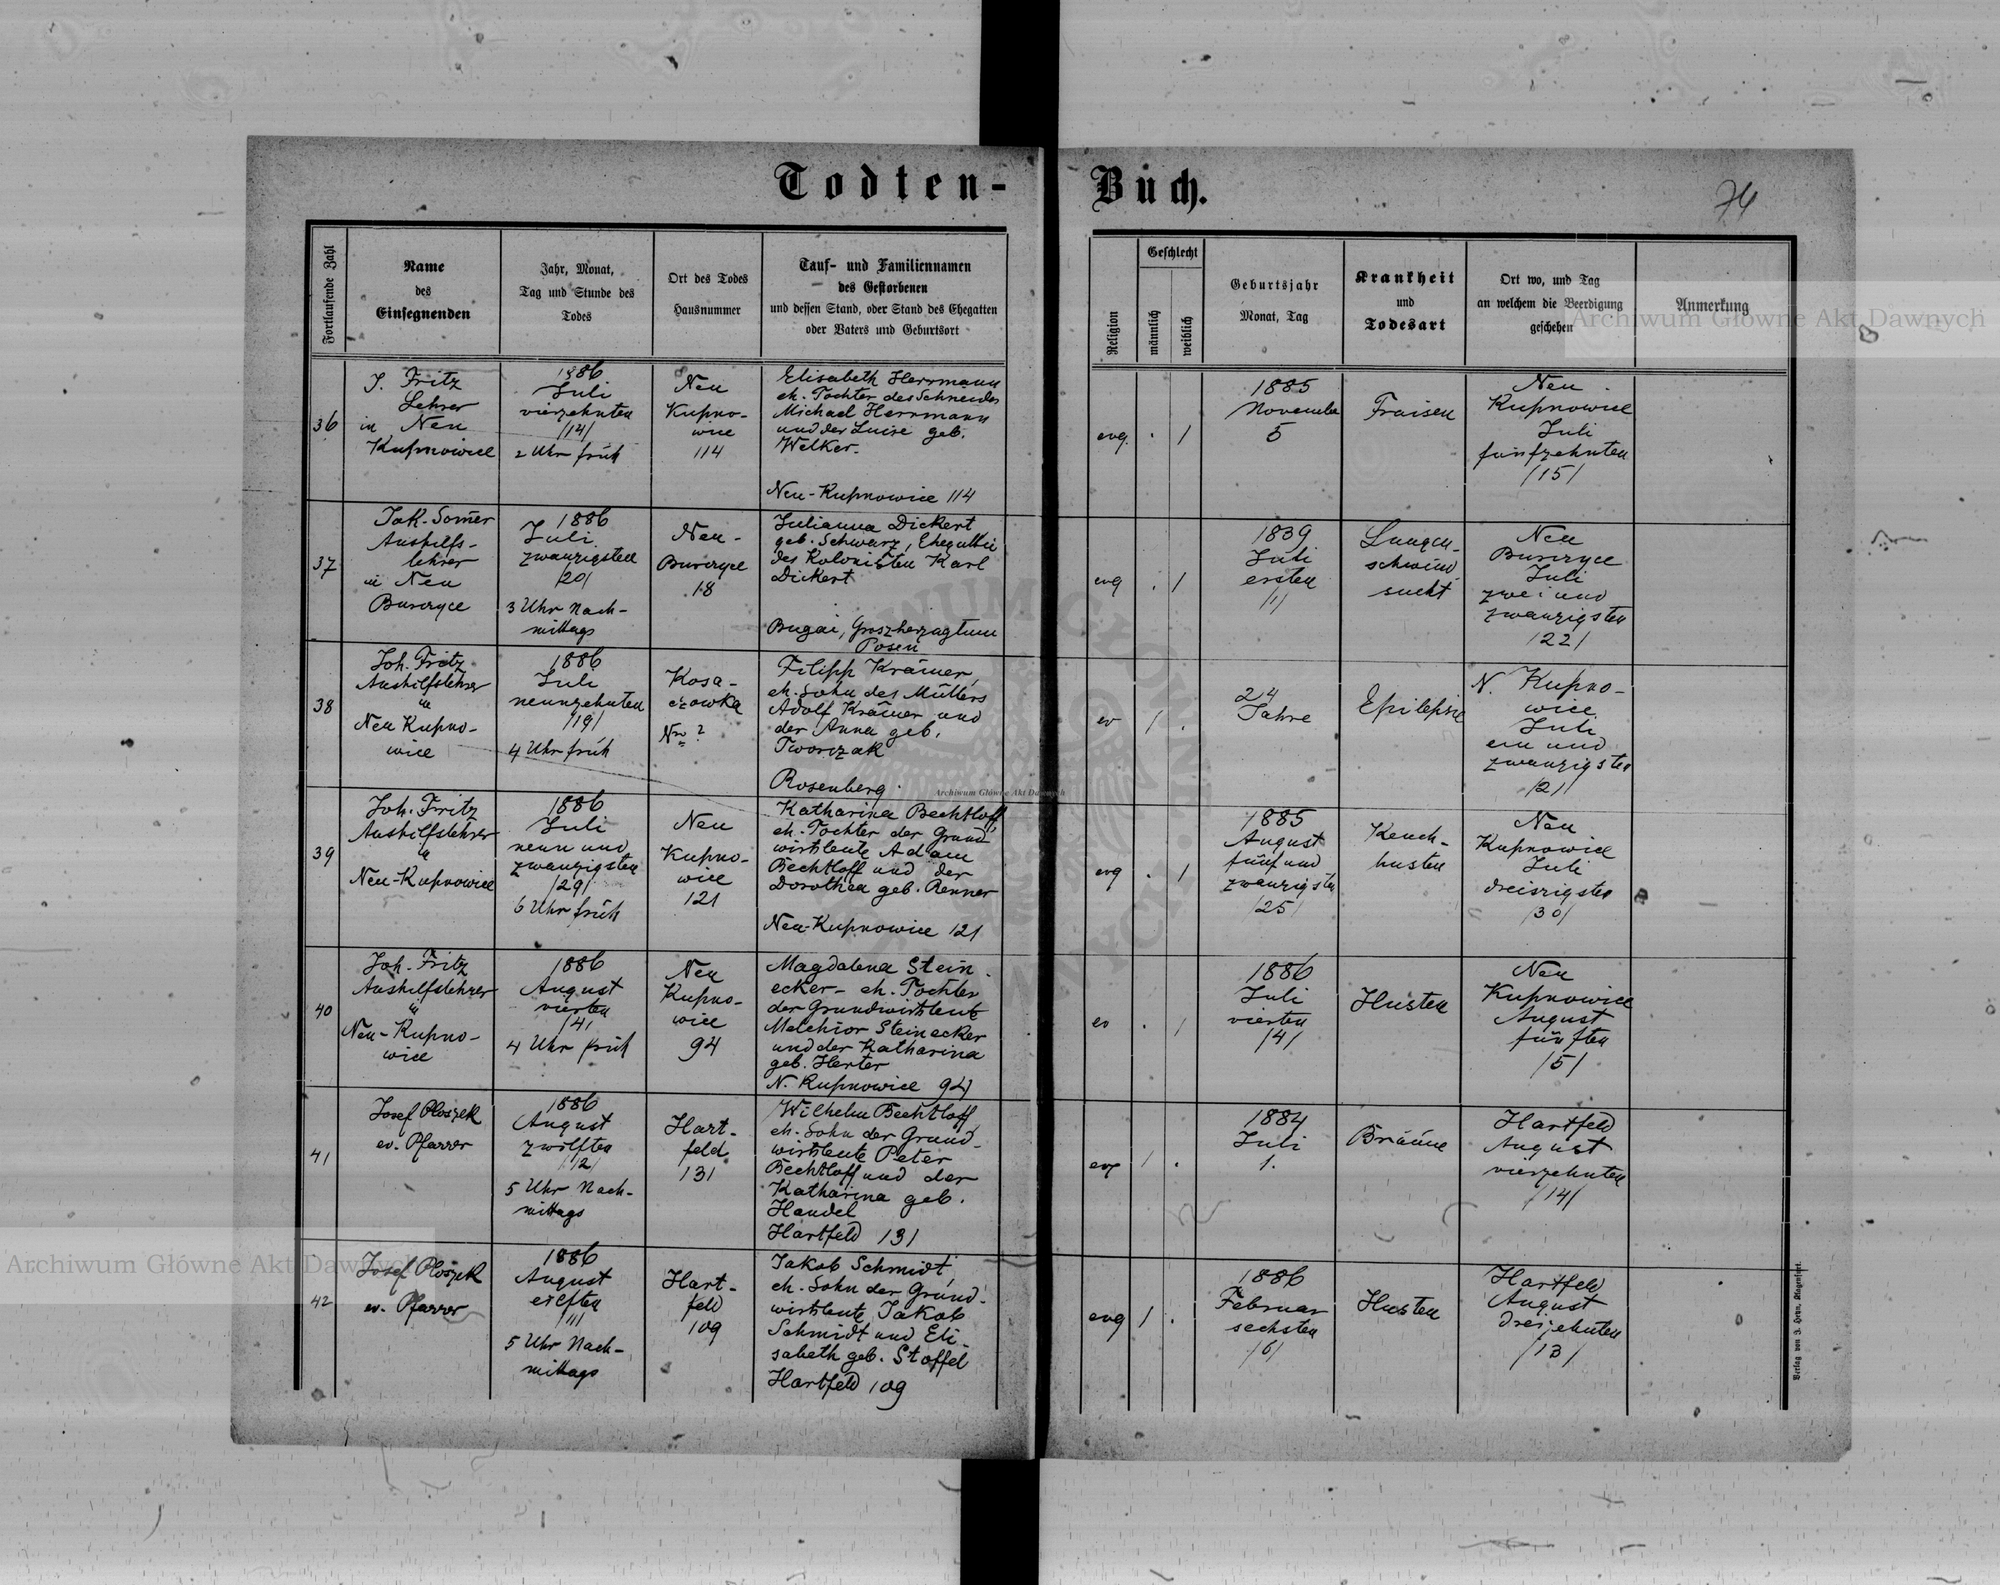 Todten-
Buch.
74
Fortlaufende Zahl
Name
des
Einsegnenden
Jahr, Monat,
Tag und Stunde des
Todes
Ort des Todes
Hausnummer
Tauf- und Familiennamen
des Gestorbenen
und dessen Stand, oder Stand des Ehegatten
oder Vaters und Geburtsort
Religion
Geschlecht
männlich
weiblich
Geburtsjahr
Monat, Tag
Krankheit
und
Todesart
Ort wo, und Tag
an welchem die Beerdigung
geschehen
Anmerkung
36
J. Fritz
Lehrer
in Neu
Kupnowice
1886
Juli
vierzehnten
/14/
2 Uhr früh
Neu
Kupno-
wice
114
Elisabeth Herrmann
eh. Tochter des Schneiders
Michael Herrmann
und der Luise geb.
Welker.
Neu-Kupnowice 114
evg.
. /
1885
November
5
Fraisen
Neu
Kupnowice
Juli
fünfzehnten
/15/
37
Jak. Somer
Aushilfs-
lehrer
in Neu
Burczyce
1886
Juli
zwanzigsten
/20/
3 Uhr Nach-
mittags
Neu-
Burczyce
18
Julianna Dickert
geb. Schwarz, Ehegattin
des Kolonisten Karl
Dickert
Bugai, Groszherzogtum
Posen
evg
. /
1839
Juli
ersten
/1/
Lungen-
schwind
sucht
Neu
Burczyce
Juli
zwei und
zwanzigsten
/22/
38
Joh. Fritz
Aushilfslehrer
in
Neu Kupno-
wice
1886
Juli
neunzehnten
/19/
4 Uhr früh
Kosa-
czowka
Nro ?
Filipp Krämer,
eh. Sohn des Müllers
Adolf Krämer und
der Anna geb.
Tworczak
Rosenberg.
ev
/ .
24
Jahre
Epilepsie
N. Kupno-
wice
Juli
ein und
zwanzigsten
/21/
39
Joh. Fritz
Aushilfslehrer
in
Neu-Kupnowice
1886
Juli
neun und
zwanzigsten
/29/
6 Uhr früh
Neu
Kupno-
wice
121
Katharina Bechtloff,
eh. Tochter der Grund
wirtsleute Adam
Bechtloff und der
Dorothea geb. Renner
Neu-Kupnowice 121
evg
. /
1885
August
fünf und
zwanzigsten
/25/
Keuch-
husten
Neu
Kupnowice
Juli
dreiszigsten
/30/
40
Joh. Fritz
Aushilfslehrer
in
Neu-Kupno-
wice
1886
August
vierten
/4/
4 Uhr früh
Neu
Kupno-
wice
94
Magdalena Stein-
ecker - eh. Tochter
der Grundwirtsleute
Melchior Steinecker
und der Katharina
geb. Herter
N. Kupnowice 94
ev
. /
1886
Juli
vierten
/4/
Husten
Neu
Kupnowice
August
fünften
/5/
41
Josef Ploszek
ev. Pfarrer
1886
August
zwölften
/12/
5 Uhr Nach-
mittags
Hart-
feld
131
Wilhelm Bechtloff,
eh. Sohn der Grund-
wirtsleute Peter
Bechtloff und der
Katharina geb.
Handel
Hartfeld 131
evg
/ .
1884
Juli
1.
Bräune
Hartfeld
August
vierzehnten
/14/
42
Josef Ploszek
ev. Pfarrer
1886
August
elften
/11/
5 Uhr Nach-
mittags
Hart-
feld
109
Jakob Schmidt,
eh. Sohn der Grund-
wirtsleute Jakob
Schmidt und Eli-
sabeth geb. Stoffel
Hartfeld 109
evg
/ .
1886
Februar
sechsten
/6/
Husten
Hartfeld
August
dreizehnten
/13/
Verlag von J. Heyn, Klagenfurt.
Archiwum Główne Akt Dawnych
Archiwum Główne Akt Dawnych
Archiwum Główne Akt Dawnych